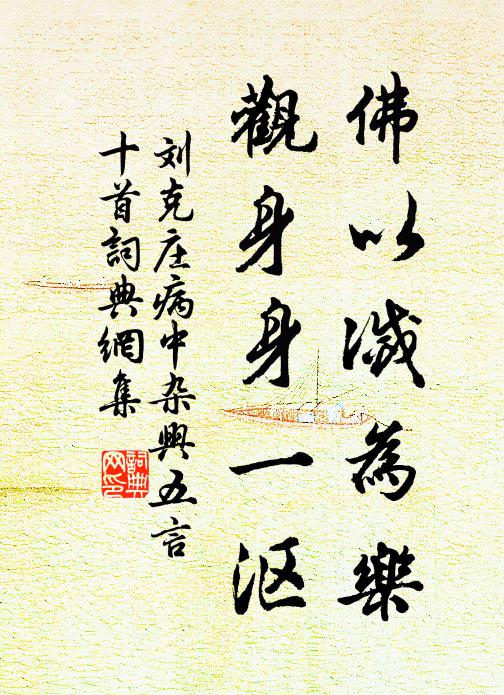 佛以滅為樂
觀身身一沤
刘克庄病中杂興五言
十首詞典網集
詞典
网印